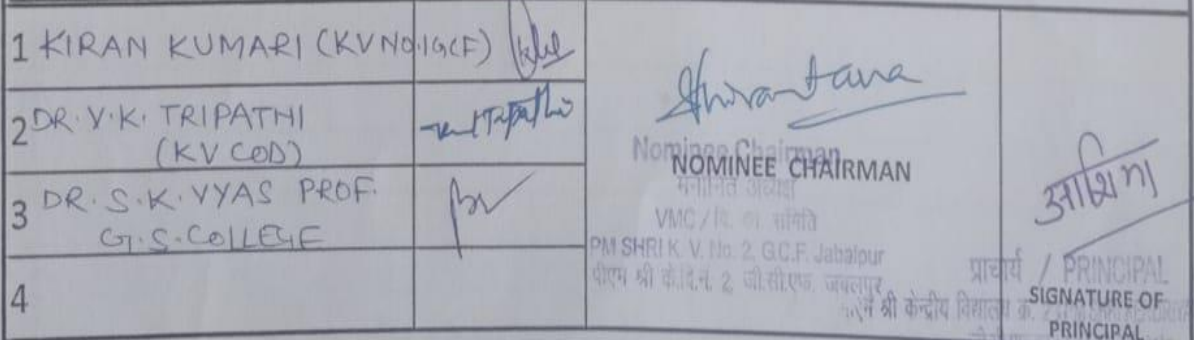 1 KIRAN KUMARI (KV NO.1GCF)
2 DR. V.K. TRIPATHI
(KV COD)
3 DR. S.K. VYAS PROF.
G.S. COLLEGE
4
Nominee Chairman
NOMINEE CHAIRMAN
मनोनित अध्यक्ष
VMC / वि. का. समिति
PM SHRI K. V. No. 2, G.C.F. Jabalpur
पीएम श्री के.वि.नं. 2, जी.सी.एफ. जबलपुर
प्राचार्य / PRINCIPAL
श्री केन्द्रीय विद्यालय क्र. 2
SIGNATURE OF
PRINCIPAL